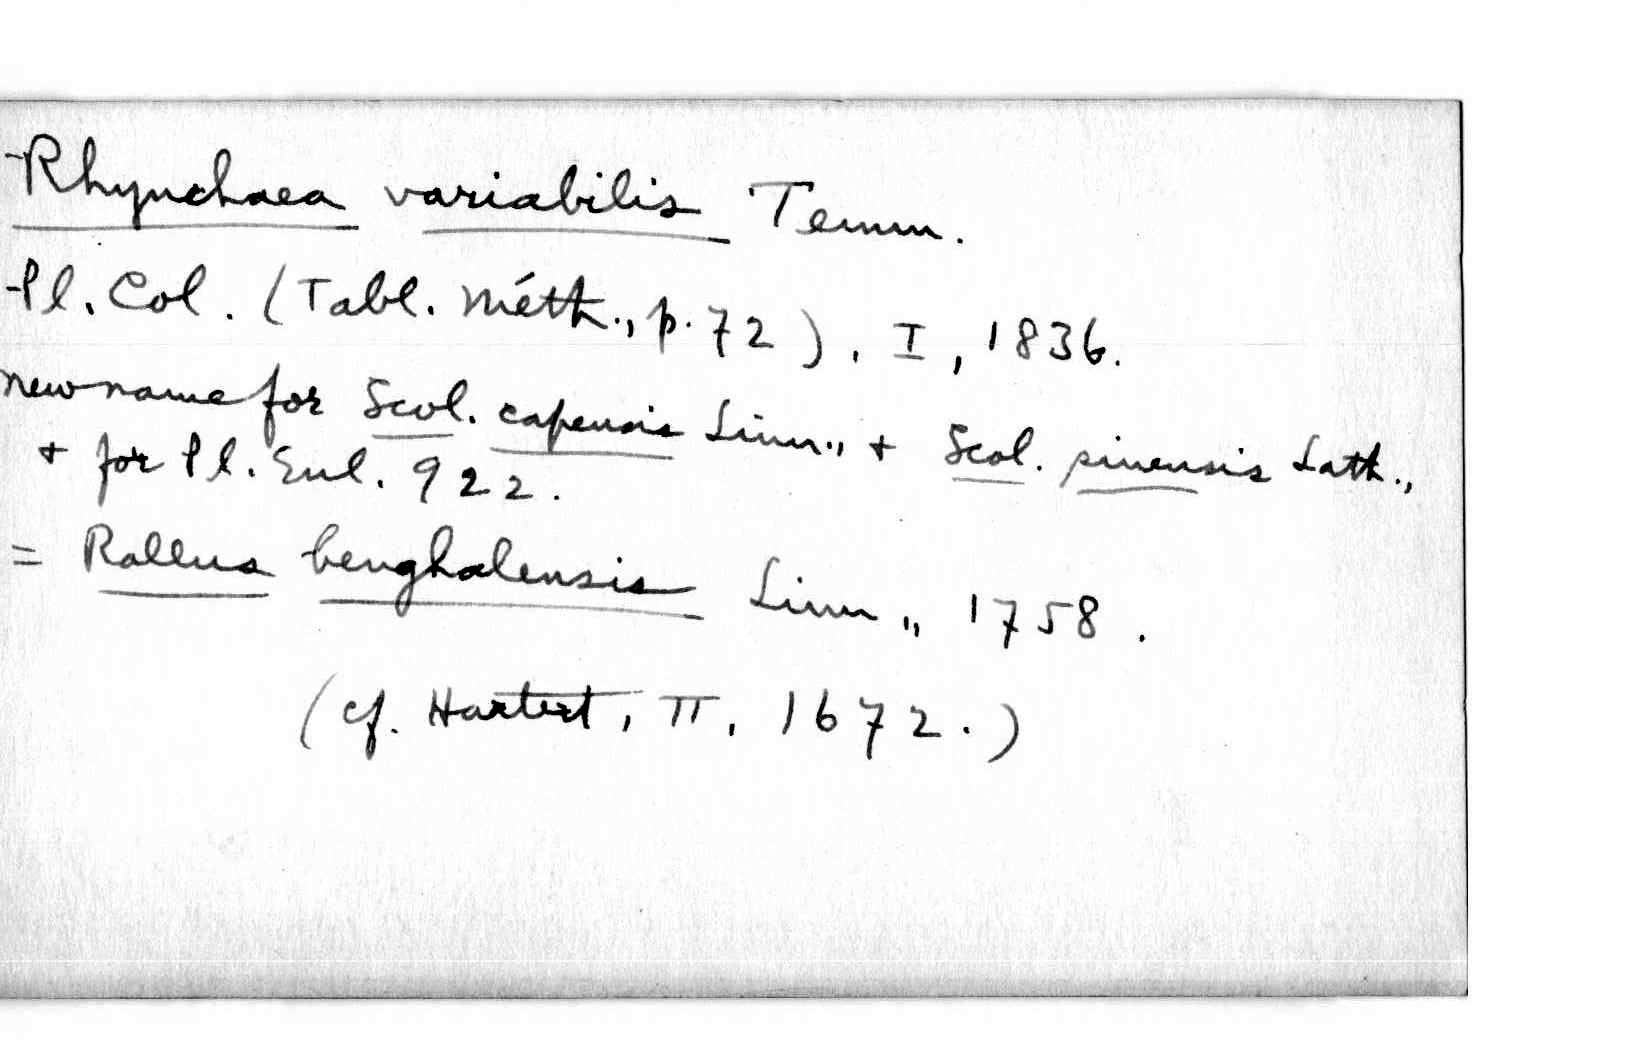 Rhynchaea variabilis Temm.
Pl. Col. (Tabl. Méth., p. 72), I, 1836.
new name for Scol. capensis Linn., + Scol. sinensis Lath.,
+ for Pl. Enl. 922.
= Rallus benghalensis Linn., 1758.
(cf. Hartert, II, 1672.)